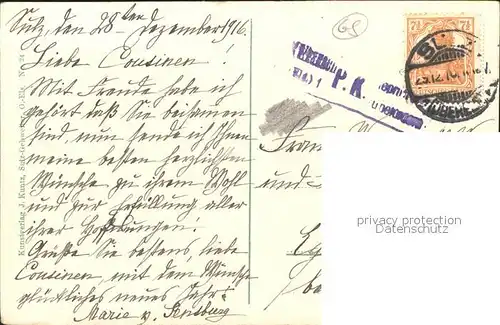 Sulz, den 28ten Dezember 1916.
Liebe Cousinen!
Mit Freude habe ich
gehört daß Sie beisamen
sind, nun sende ich Ihnen
meine besten herzlichsten
Wünsche zu ihrem Wohl
und zur Erfüllung aller
ihrer Hoffnungen!
Grüße Sie bestens, liebe
Cousinen, mit dem Wunsche
glückliches neues Jahr!
Marie v.
Kunstverlag J. Kuntz, Sulz O.-Els. No.
7½ 7½
P. K.
29.12.16
Frau
und
privacy protection
Datenschutz